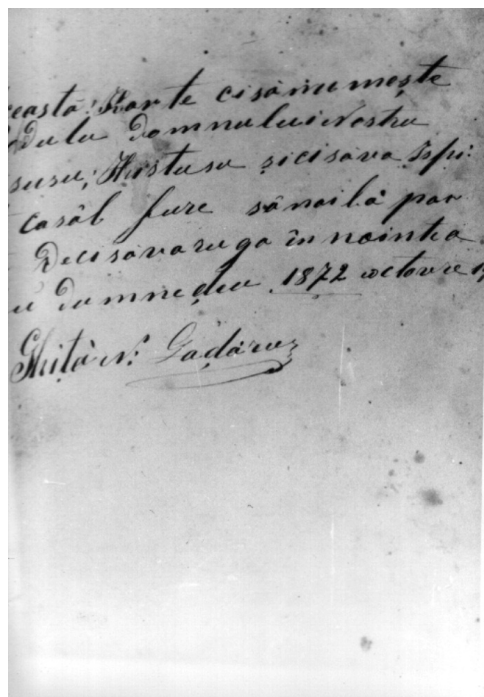 easta: Karte cisânumeşte
dulu domnului Nostru
susu; Hristusu şicisava Ispi:
casâl fure sânoilâ por
Decisavaruga în nainтea
ŭ dumneḑeu 1872 octovre 1
Ghiţâ N: Gaḑâru